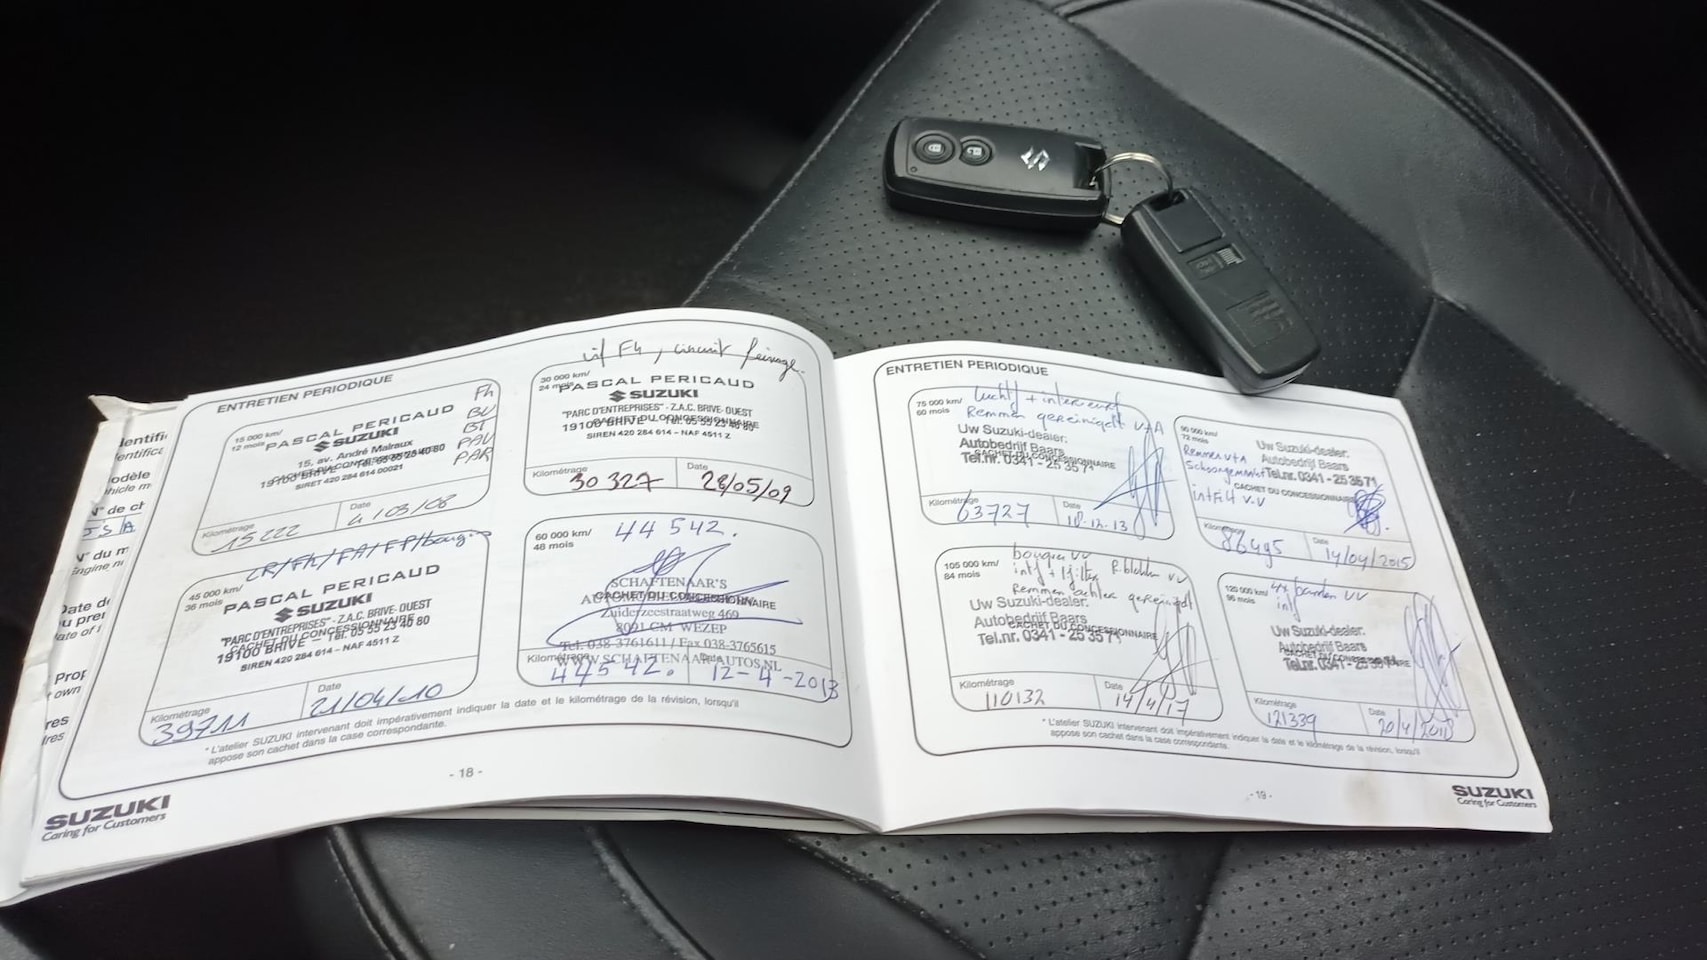 ENTRETIEN PERIODIQUE
15 000 km/
12 mois
PASCAL PERICAUD
SUZUKI
15, av. André Malraux
CACHET DU CONCESSIONNAIRE
19100 BRIVE - Tél. 05 55 23 40 80
SIRET 420 284 614 00021
Fh
BV
BT
PAV
PAR
Kilométrage
15222
Date
4/03/08
vif Fh, circuit freinage.
30 000 km/
24 mois
PASCAL PERICAUD
SUZUKI
"PARC D'ENTREPRISES" - Z.A.C. BRIVE-OUEST
CACHET DU CONCESSIONNAIRE
19100 BRIVE - Tél. 05 55 23 40 80
SIREN 420 284 614 - NAF 4511 Z
Kilométrage
30 327
Date
28/05/09
45 000 km/
36 mois
PASCAL PERICAUD
SUZUKI
"PARC D'ENTREPRISES" - Z.A.C. BRIVE-OUEST
CACHET DU CONCESSIONNAIRE
19100 BRIVE - Tél. 05 55 23 40 80
SIREN 420 284 614 - NAF 4511 Z
Kilométrage
39711
Date
21/04/10
60 000 km/
48 mois
44 542.
SCHAFTENAAR'S
CACHET DU CONCESSIONNAIRE
Zuiderzeestraatweg 469
8091 CM WEZEP
Tel. 038-3761611 / Fax 038-3765615
WWW.SCHAFTENAAR-AUTOS.NL
Kilométrage
44542.
Date
12-4-2013
* L'atelier SUZUKI intervenant doit impérativement indiquer la date et le kilométrage de la révision, lorsqu'il
appose son cachet dans la case correspondante.
- 18 -
SUZUKI
Caring for Customers
ENTRETIEN PERIODIQUE
75 000 km/
60 mois
Remmen gereinigd V+A
Uw Suzuki-dealer:
Autobedrijf Baars
CACHET DU CONCESSIONNAIRE
Tel.nr. 0341 - 25 35 71
Kilométrage
63727
Date
18-12-13
90 000 km/
72 mois
Uw Suzuki-dealer:
Autobedrijf Baars
Remmen V+A
Schoongemaakt
Tel.nr. 0341 - 25 35 71
CACHET DU CONCESSIONNAIRE
Kilométrage
86495
Date
14/04/2015
105 000 km/
84 mois
Remmen achter gereinigd
Uw Suzuki-dealer:
Autobedrijf Baars
CACHET DU CONCESSIONNAIRE
Tel.nr. 0341 - 25 35 71
Kilométrage
110132
Date
14/4/17
120 000 km/
96 mois
4x banden VV
Uw Suzuki-dealer:
Autobedrijf Baars
CACHET DU CONCESSIONNAIRE
Tel.nr. 0341 - 25 35 71
Kilométrage
121339
Date
20/4/2018
* L'atelier SUZUKI intervenant doit impérativement indiquer la date et le kilométrage de la révision, lorsqu'il
appose son cachet dans la case correspondante.
- 19 -
SUZUKI
Caring for Customers